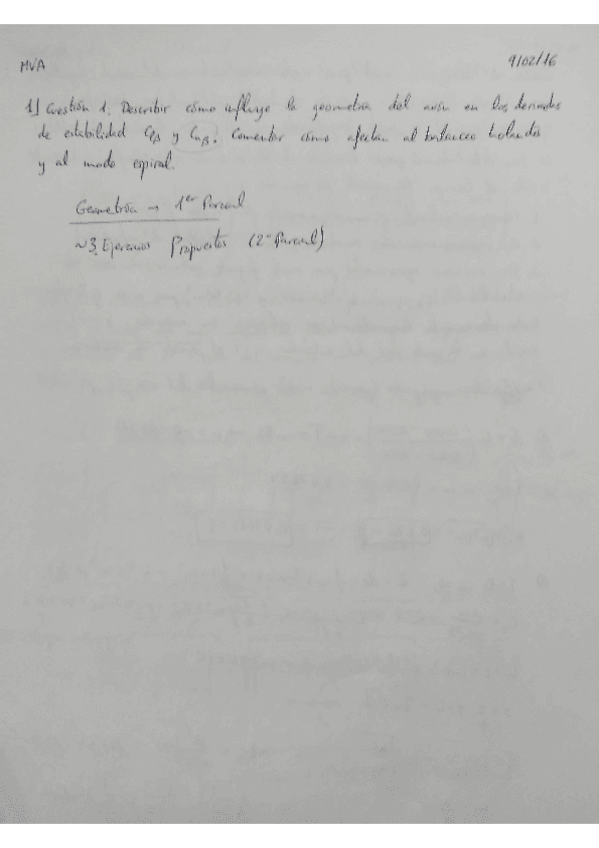 MVA
9/02/16
1] Cuestión 1. Describir cómo influye la geometría del avión en las derivadas
de estabilidad Clβ y Cnβ. Comentar cómo afectan al balanceo holandés
y al modo espiral.
Geometría → 1er Parcial
~3. Ejercicios Propuestos (2º Parcial)